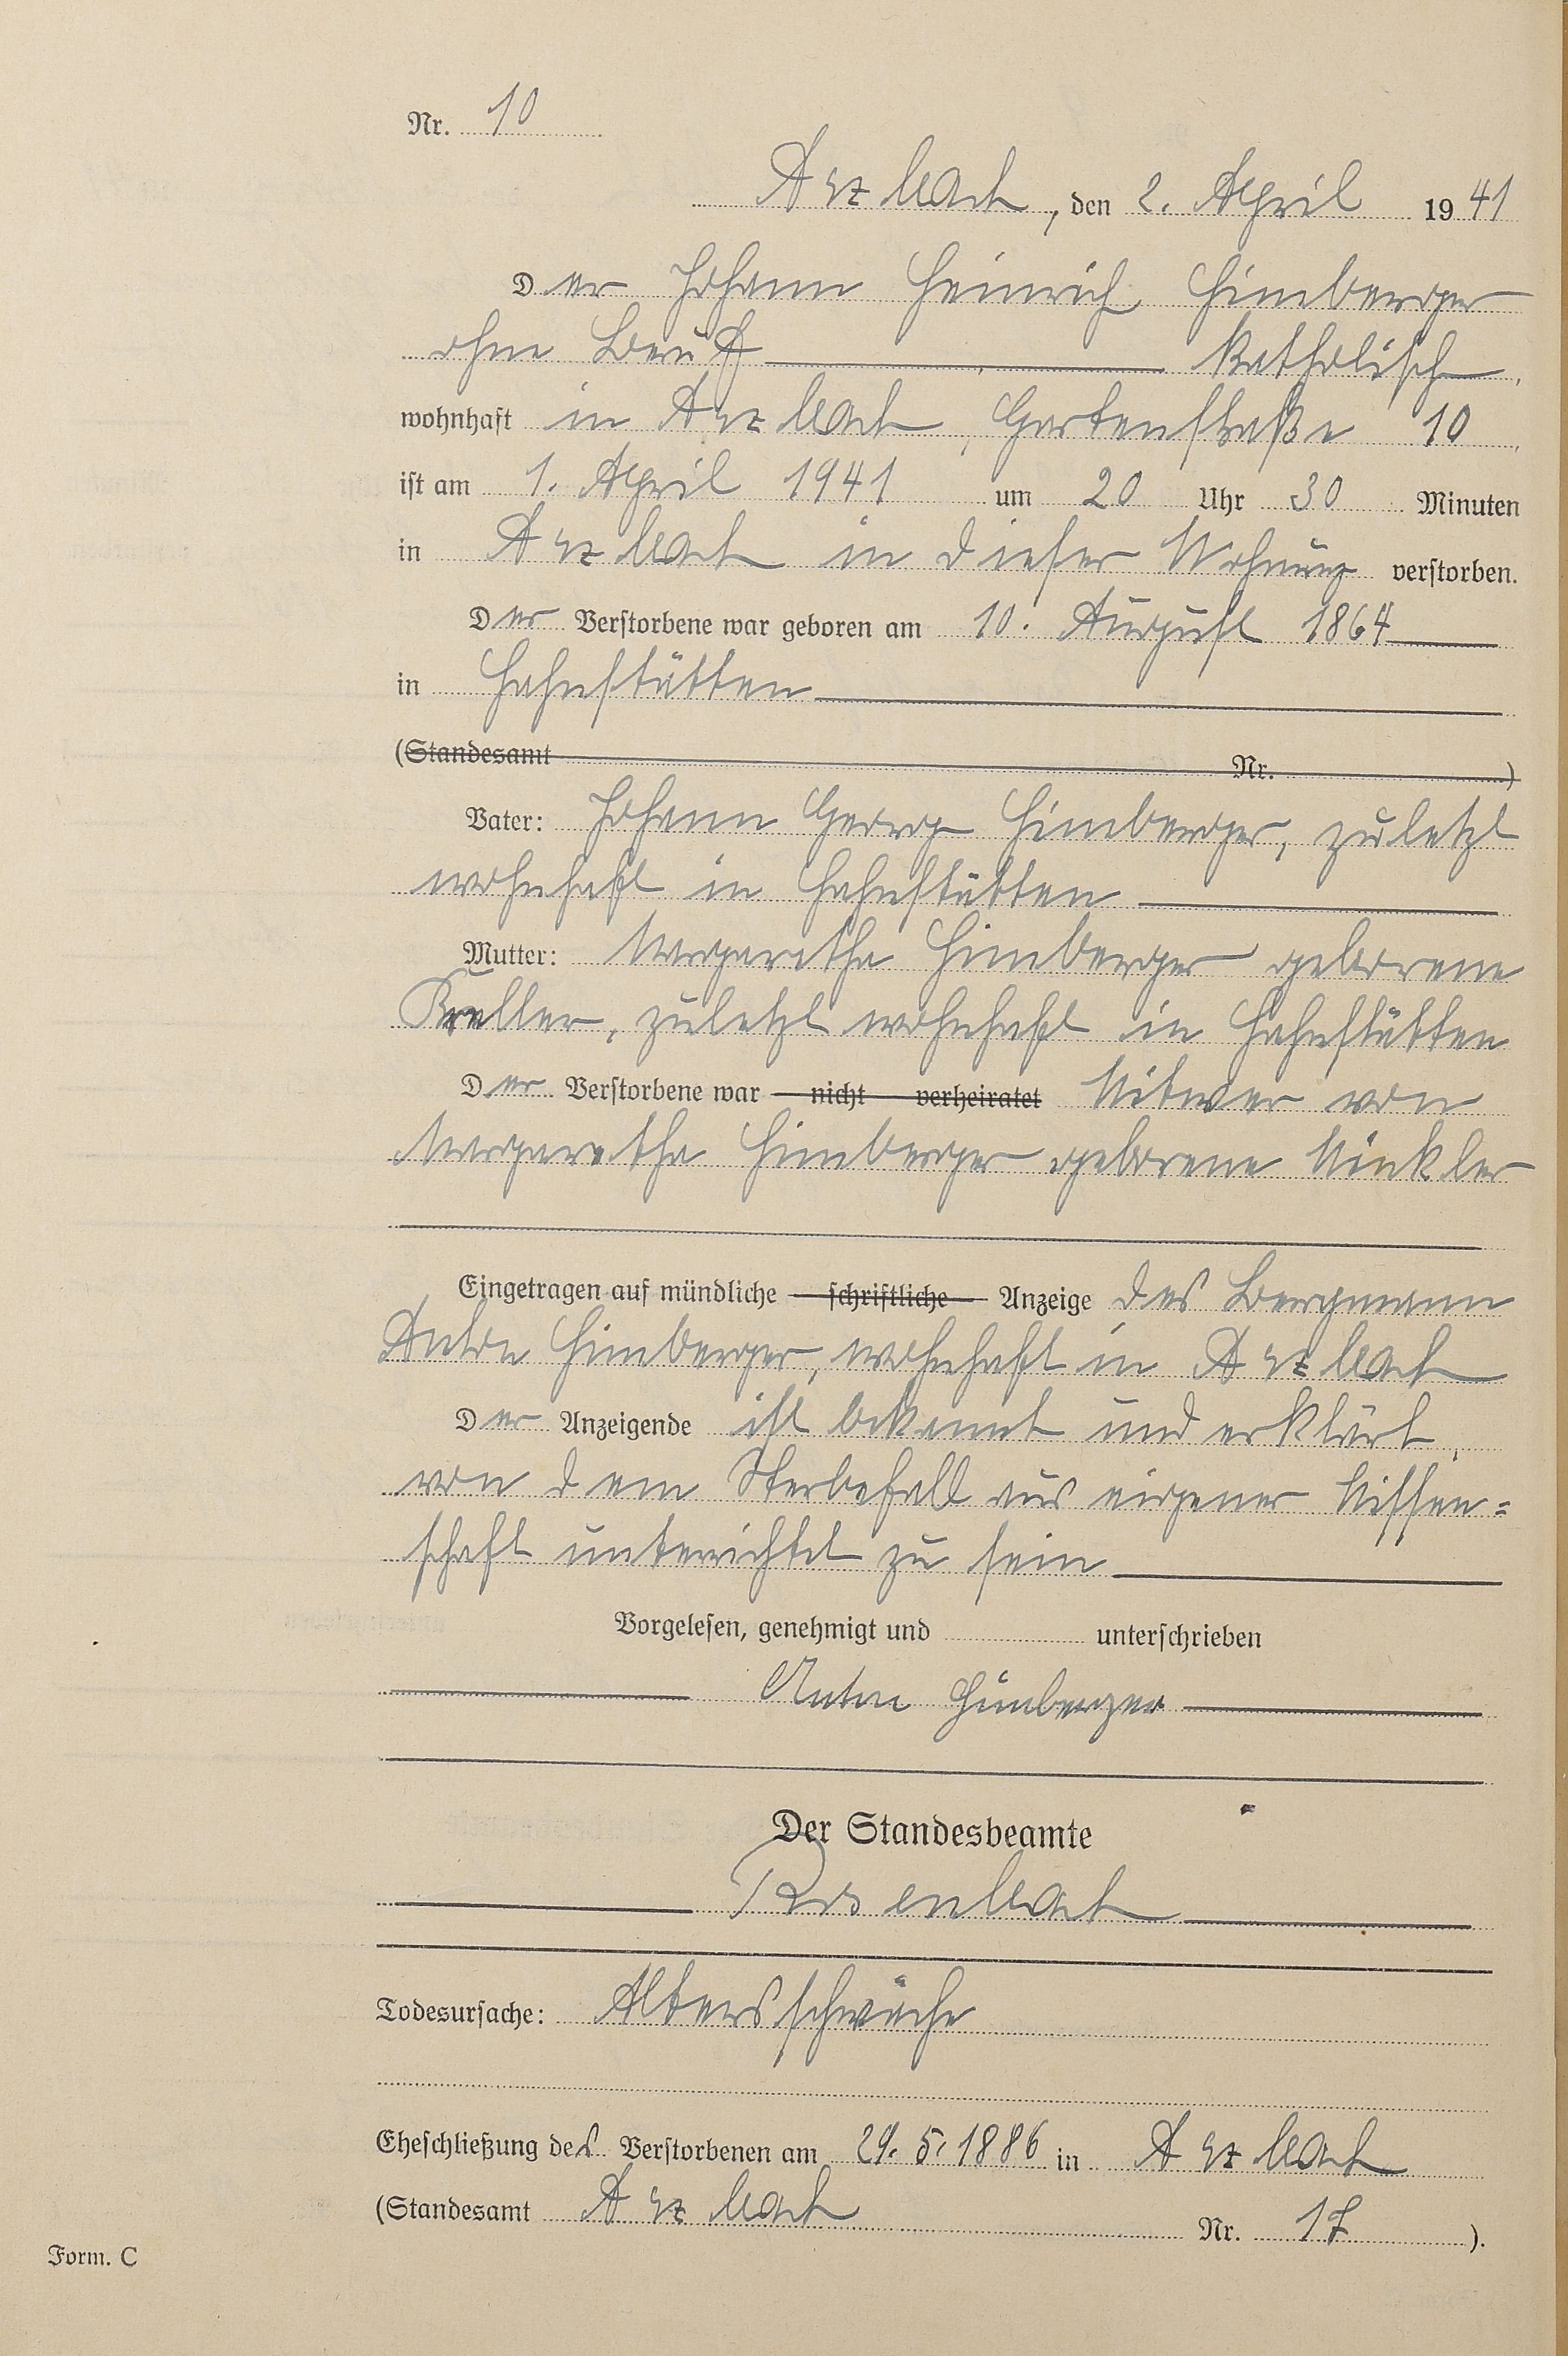 Nr. 10
Arzbach, den 2. April 1941
Der Johann Heinrich Himberger
ohne Beruf katholisch,
wohnhaft in Arzbach, Gartenstraße 10,
ist am 1. April 1941 um 20 Uhr 30 Minuten
in Arzbach in dieser Wohnung verstorben.
Der Verstorbene war geboren am 10. August 1864
in Hahnstätten
(Standesamt Nr. )
Vater: Johann Georg Himberger, zuletzt
wohnhaft in Hahnstätten
Mutter: Margaretha Himberger geborene
Kreller, zuletzt wohnhaft in Hahnstätten
Der Verstorbene war nicht verheiratet Witwer von
Margaretha Himberger geborene Winkler
Eingetragen auf mündliche schriftliche Anzeige des Bergmann
Anton Himberger, wohnhaft in Arzbach
Der Anzeigende ist bekannt und erklärt,
von dem Sterbefall aus eigener Wissen=
schaft unterrichtet zu sein
Vorgelesen, genehmigt und unterschrieben
Anton Himberger
Der Standesbeamte
Rosenbach
Todesursache: Altersschwäche
Eheschließung des Verstorbenen am 29. 5. 1886 in Arzbach
(Standesamt Arzbach Nr. 17 ).
Form. C